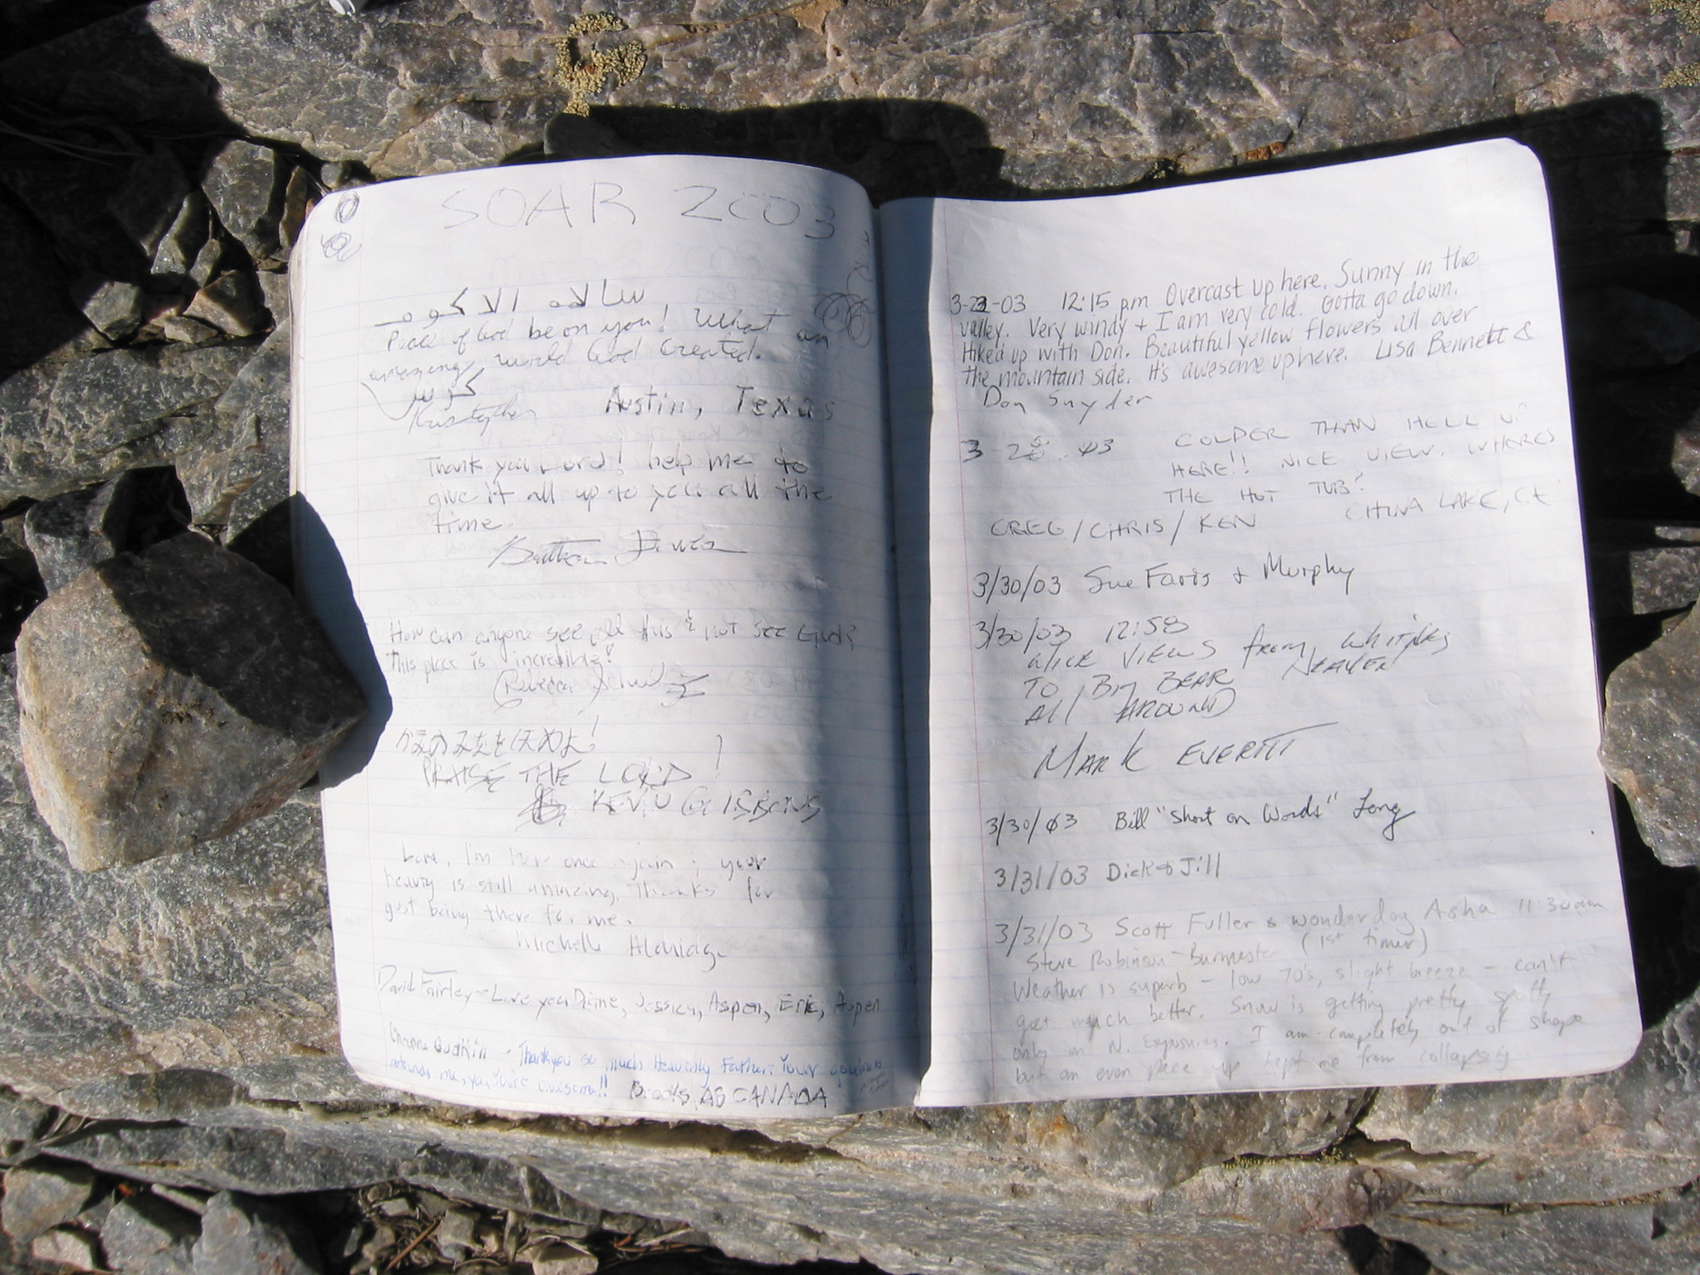 SOAR 2003
سلاه الا كوم
Peace of God be on you! What an
amazing world God created.
كرس
Kristopher Austin, Texas
Thank you Lord! help me to
give it all up to you all the
time.
How can anyone see all this & not see God?
This place is incredible!
Rebecca
PRAISE THE LORD!
KEVIN GIBBONS
Lord, I'm here once again; your
beauty is still amazing. Thanks for
just being there for me.
Michelle Aldridge
David Fairley - Love you Diane, Jessica, Aspen, Eric, Aspen
Thank you so much Heavenly Father. Your
You're awesome!! AB CANADA
3-23-03 12:15 pm Overcast up here. Sunny in the
valley. Very windy + I am very cold. Gotta go down.
Hiked up with Don. Beautiful yellow flowers all over
the mountain side. It's awesome up here. Lisa Bennett &
Don Snyder
3-28-03 COLDER THAN HELL UP
HERE!! NICE VIEW. WHERES
THE HOT TUB?
GREG/CHRIS/KEN CHINA LAKE, CA
3/30/03 Sue Faris + Murphy
3/30/03 12:58
NICE VIEWS from Whitney
TO BIG BEAR
All AROUND
MARK EVERITT
3/30/03 Bill "Short on Words" Long
3/31/03 Dick & Jill
3/31/03 Scott Fuller & wonderdog Asha 11:30am
Steve Robinson - (1st timer)
Weather is superb - low 70's, slight breeze - can't
get much better. Snow is getting pretty spotty
only on N. Exposures. I am completely out of shape
but an even pace up kept me from collapsing